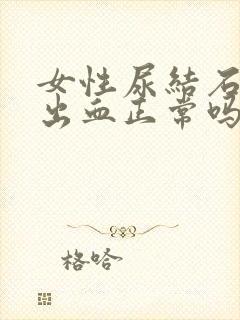 女性尿結石
出血正常嗎
格哈